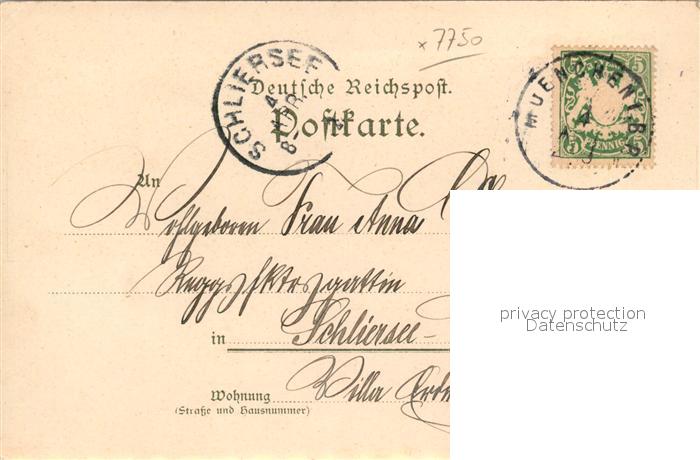 x 7750
SCHLIERSEE
4
APR.
8-
MUENCHEN 1. B.
4
5 5
PFENNIG
Deutsche Reichspost.
Postkarte.
An
Wohlgeboren Frau Anna
in Schliersee-
Wohnung Villa
(Straße und Hausnummer)
privacy protection
Datenschutz